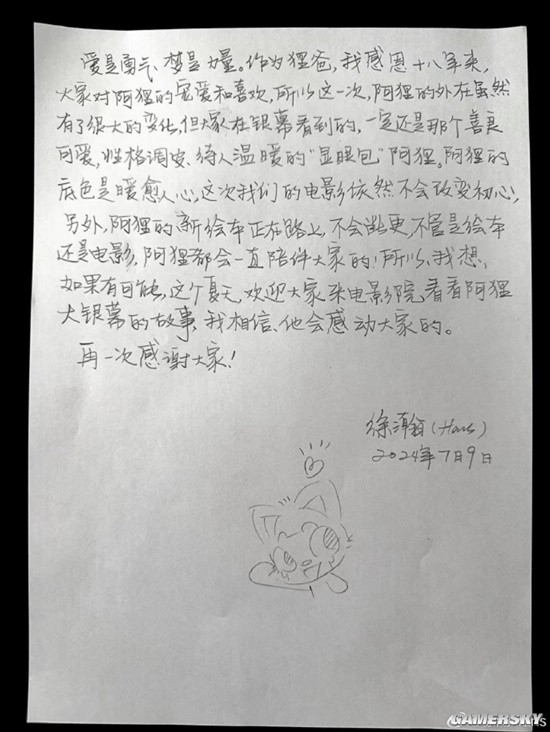 爱是勇气、梦是力量。作为狸爸，我感恩十八年来，
大家对阿狸的宠爱和喜欢，所以这一次，阿狸的外在虽然
有了很大的变化，但大家在银幕看到的，一定还是那个善良
可爱，性格调皮、待人温暖的“显眼包”阿狸。阿狸的
底色是暖愈人心，这次我们的电影依然不会改变初心，
另外，阿狸的新绘本正在路上，不会断更，不管是绘本
还是电影，阿狸都会一直陪伴大家的！所以，我想，
如果有可能，这个夏天，欢迎大家来电影院，看看阿狸
大银幕的故事，我相信、他会感动大家的。
再一次感谢大家！
徐瀚(Hans)
2024年7月9日
GAMERSKY